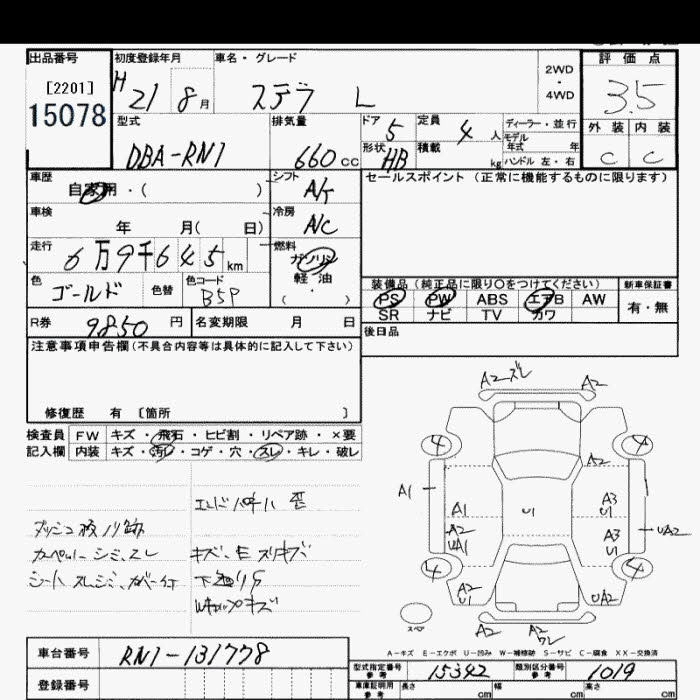 出品番号 初度登録年月 車名・グレード 評価点
[2201] H21 8月 ステラ L 2WD・4WD 3.5
15078
型式 排気量 ドア 5 定員 4人 ディーラー・並行 外装 内装
DBA-RN1 660cc 形状 HB 積載 kg モデル年式 年 C C
ハンドル 左・右
車歴 自家用・( ) シフト A/T セールスポイント(正常に機能するものに限ります)
車検 年 月( 日) 冷房 A/C
走行 6万9千645km 燃料 ガソリン
軽油
( )
色 ゴールド 色替 色コード B5P 装備品(純正品に限り○をつけてください) 新車保証書
PS PW ABS エアB AW 有・無
SR ナビ TV カワ
R券 9850円 名変期限 月 日 後日品
注意事項申告欄(不具合内容等は具体的に記入して下さい)
修復歴 有 〔箇所 〕
検査員 FW キズ・飛石・ヒビ割・リペア跡・×要
記入欄 内装 キズ・汚レ・コゲ・穴・スレ・キレ・破レ
ダッシュ 液ノリ跡
シート スレ
キズ、E スリキズ
A2 ズレ A2
4 4
A2
A1
A1 U1 A3
U1
A2 A3
UA1 U1 UA2
4 4
A2
U1 UA2
スペア A2 A2
ワレ
A-キズ E-エクボ U-凹み W-補修跡 S-サビ C-腐食 XX-交換済
車台番号 RN1-131778
登録番号
型式指定番号 参考 15342 類別区分番号 参考 1019
車庫証明用 参考 長さ cm 幅 cm 高さ cm